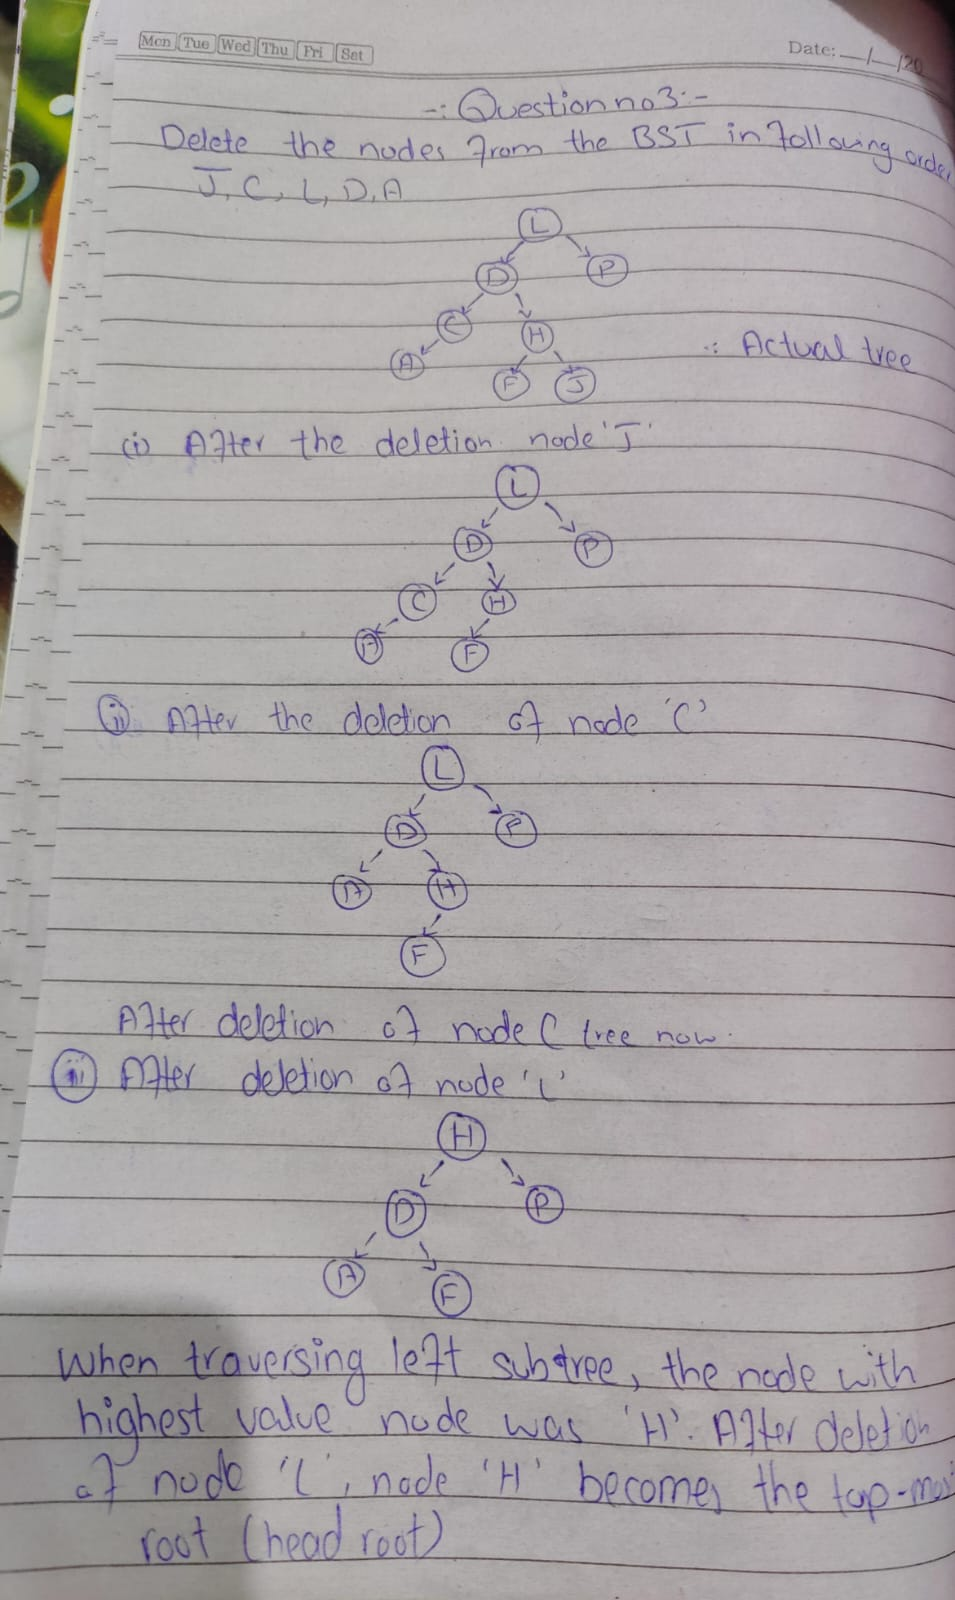 Mon Tue Wed Thu Fri Sat
Date:__/__/20
-: Question no 3 :-
Delete the nodes from the BST in following order
J, C, L, D, A
L
D P
C H
A F J
∴ Actual tree
(i) After the deletion node 'J'
L
D P
C H
A F
(ii) After the deletion of node 'C'
L
D P
A H
F
After deletion of node C tree now.
(iii) After deletion of node 'L'
H
D P
A F
When traversing left subtree, the node with
highest value node was 'H'. After deletion
of node 'L', node 'H' becomes the top-mos
root (head root)